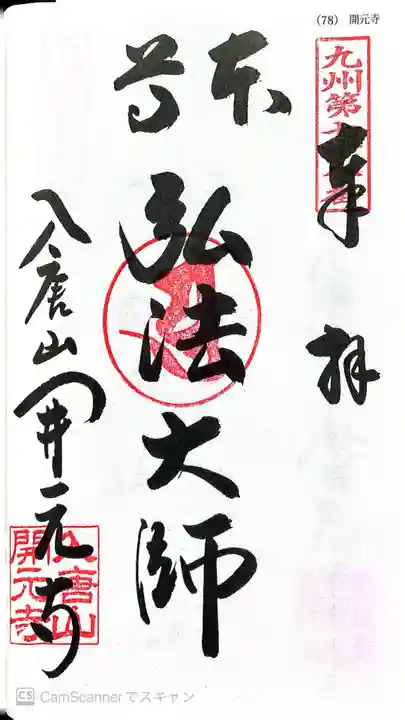 (78) 開元寺
奉拝
本尊
弘法大師
入唐山開元寺
九州第
入唐山
開元寺
CS CamScannerでスキャン